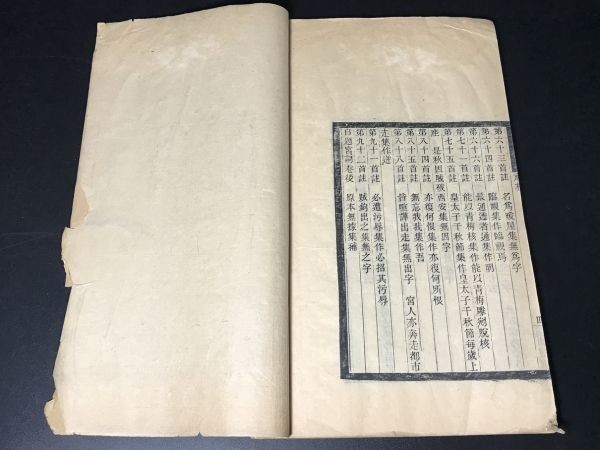 第六十三首註 名爲暖屋集無爲字
第六十四首註 臨視集作臨視爲
第六十六首註 最通透者通集作明
第七十一首註 能以青梅核集作能以青梅雕剜脫核
第七十五首註 皇太子千秋節集作皇太子千秋節每歲上
座 是秋因賊破西安集無西字
第八十四首註 亦復何恨集作亦復何所恨
第八十五首註 無忘我我集作吾
第八十八首註 皆喧譁出走集無出字 宮人亦奔走都市
走集作迸
第九十一首註 必遭污辱集作必招其污辱
第九十二首註 賊鉤出之集無之字
自題宮詞卷後 原本無據集補
四